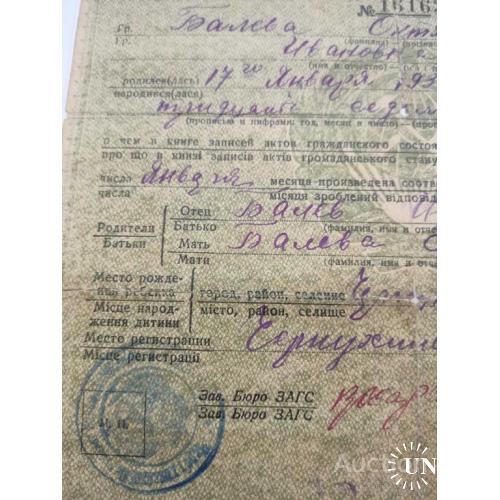 № 1616
Гр. Балева Октя
Гр. (фамилия) — (прізви
Ивановна
(имя и отчество) — (ім'я
родился(лась) 17го Января 193
народився(лася)
тридцать седьм
(прописью и цифрами: год, месяц и число) — (про
о чем в книге записей актов гражданского состоя
про що в книзі записів актів громадянського стану
числа Января месяца произведена соотв
числа місяця зроблений відповід
Родители Отец Балев И
Батьки Батько (фамилия, имя и отче
Мать Балева О
Мати (фамилия, имя и отче
Место рожде-
ния ребенка город, район, селение
Місце народ-
ження дитини місто, район, селище
Место регистрации Чернухин
Місце реєстрації
Зав. Бюро ЗАГС
Зав. Бюро ЗАГС
М. П.
UN